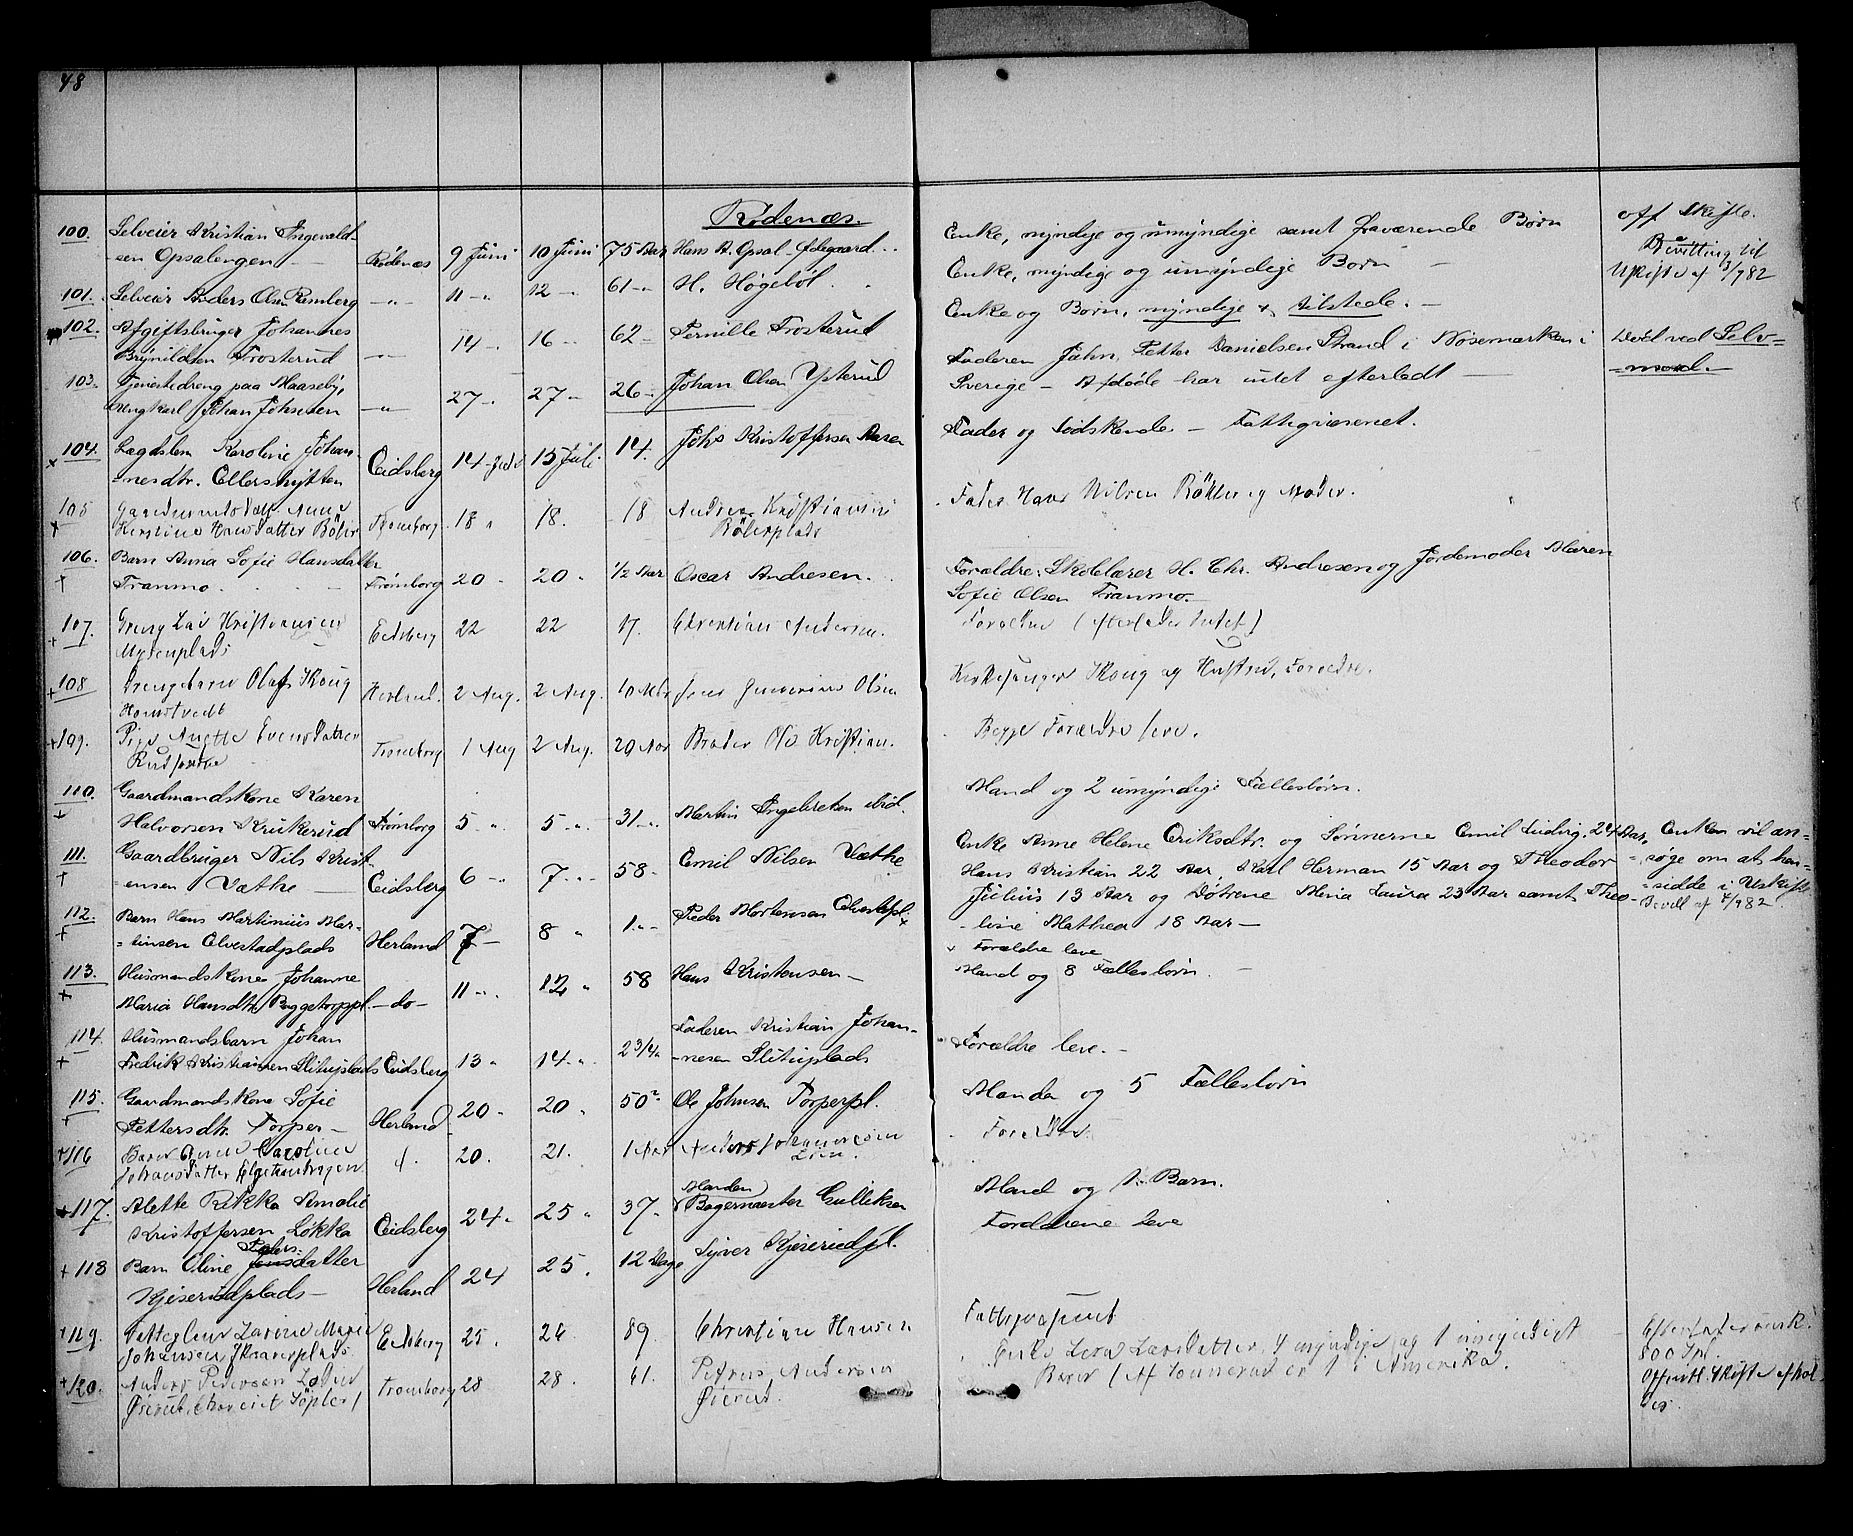 48
Rødenæs.
100. Selveier Kristian Ingevald-
sen Opsalengen — Rødenæs 9 Juni 10 Juni 75 Aar Hans A. Opsal-Ødegaard.. Enke, myndige og umyndige samt fraværende Børn off Skifte.
101. Selveier Anders Olsen Ramberg —"— 11 —"— 12 —"— 61 —"— H. Høgebøl. Enke, myndige og umyndige Børn — Bevilling til
Uskifte af 3/7 82
102. Afgiftsbruger Johannes
Brynildsen Trosterud —"— 14 — 16 — 62 — Pernille Trosterud Enke og Børn, myndige & tilstede. —
103. Tjenestedreng paa Haaseby,
Ungkarl Johan Johnsen —"— 27 —"— 27 —"— 26 —"— Johan Olsen Ysterud Faderen John Petter Danielsen Strand i Nøsemarken i
Sverige — Afdøde har intet efterladt — Død ved Selv=
=mord.
104. Lægdslem Karoline Johan-
nesdtr. Ellershytten Eidsberg 14 Juli 15 Juli. 14. Johs Kristoffersen Fader og Sødskende — Fattigvæsenet.
105 Gaardmandsdatt Anne
Kirstine Hansdatter Böler Tromborg 18 " 18. 18 Andreas Kristiansen
Bölerplads Fader Hans Nilsen Böhler og Moder.
106. Barn Anna Sofie Hansdatter
Tranmo Trømborg 20 20 1/2 Aar Oscar Andresen. Forældre: Skolelærer H. Chr. Andresen og Jordemoder Maren
Sofie Olsen Tranmo.
107. Dreng Kristiansen
Mysenplads Eidsberg 22 22 17. Christian Andersen. Forældre (Efterlader Intet)
108 Drengebarn Olaf Skoug
Homstvedt Herland. 2 Aug. 2 Aug. 10 Mdr Jens Gunerius Olsen Kirkesanger Skoug og Hustru, Forældre.
109. Pige Anette Evensdatter
Tromborg 1 Aug 2 Aug. 20 Aar Broder Ole Kristian. Begge Forældre leve.
110. Gaardmandskone Karen
Halvorsen Krukerud Trømborg 5 —"— 5 —"— 31 —"— Martin Ingebretsen ibid. Mand og 2 umyndige Fællesbørn.
111. Gaardbruger Nils Krist-
ensen Væthe — Eidsberg 6 —"— 7 —"— 58 — Emil Nilsen Væthe Enke Anne Helene Eriksdtr. og Sønnerne Emil Ludvig, 24 Aar,
Hans Kristian 22 Aar, Karl Herman 15 Aar og Theodor
Julius 13 Aar og Døtrene Mina Laura 23 Aar samt Theo-
line Mathea 18 Aar — Enken vil an=
=søge om at hen=
=sidde i Uskifte
Bevill af 4/9 82
112. Barn Hans Martinius Mar-
=tinsen Olvestadplads Herland 7 — 8 " 1 "— Peder Mortensen Olvestpl. x x Forældre leve
113. Husmandskone Johanne
Maria Hansdtr. Baggetorppl. — do — 11 —"— 12 " 58 Hans Kristensen — Mand og 8 Fællesbørn. —
114. Husmandsbarn Johan
Fredrik Kristiansen Slituplads Eidsberg 13 " 14 —"— 2 3/4 " Faderen Kristian Johan-
-nesen Slituplads Forældre leve. —
115. Gaardmandskone Sofie
Pettersdtr. Torper — Herland 20 — 20 " 50 Ole Johnsen Torperpl. Manden og 5 Fællesbørn
116 Barn Caroline
Johansdatter 20. 21. 1 Aar Anders Johannesen Forældre
117. Alette Rikka Amalie
Kristoffersen Løkka Eidsberg 24 " 25 " 37 " Manden
Bagermester Gulliksen Mand og 1 Barn.
118 Barn Oline Peders-
Jensdatter
Kjeserudplads — Herland 24 25. 12 Dage Syver Kjeserudpl. Forældrene Leve
119. Fattiglem Larine Marie
Johansen, Skaarerplads. Eidsberg 25. 26 89. Christian Hansen Fattigvæsenet
120. Anders Pedersen
Øierud Tromborg 28 28. 61. Petrus Andersen
Øierud. Enke Lena Larsdatter, 4 myndige og 1 umyndigt
Barn (Af Sønnerne er 1 i Amerika. Efterlader
800 Spl.
Offentl. Skifte afhol-
des.